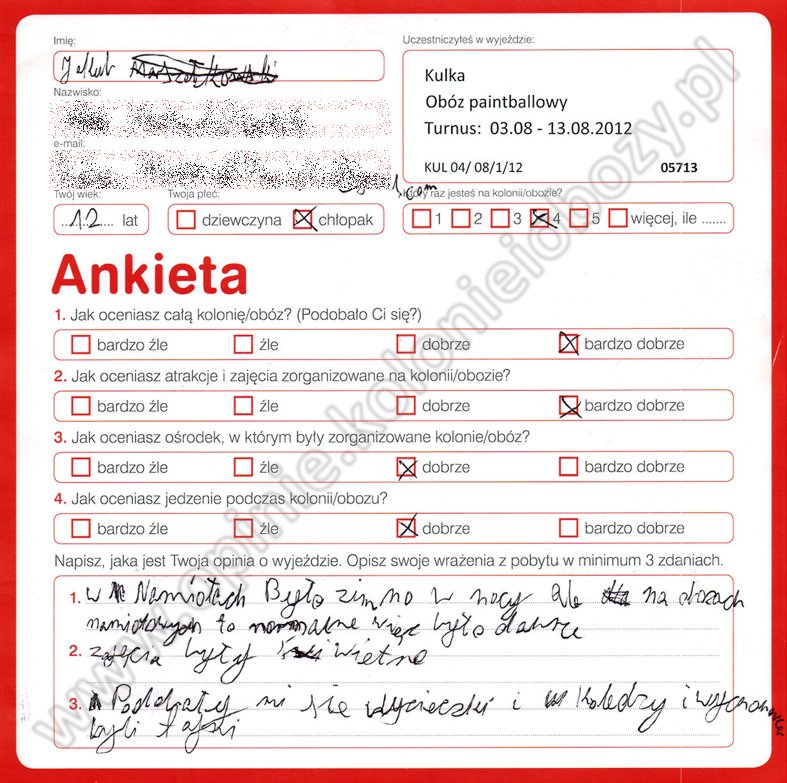 Imię:
Jakub
Uczestniczyłeś w wyjeździe:
Kulka
Obóz paintballowy
Turnus: 03.08 - 13.08.2012
KUL 04/ 08/1/12 05713
Nazwisko:
e-mail:
Twój wiek:
12 lat
Twoja płeć:
dziewczyna chłopak
Który raz jesteś na kolonii/obozie?
1 2 3 4 5 więcej, ile .......
Ankieta
1. Jak oceniasz całą kolonię/obóz? (Podobało Ci się?)
bardzo źle źle dobrze bardzo dobrze
2. Jak oceniasz atrakcje i zajęcia zorganizowane na kolonii/obozie?
bardzo źle źle dobrze bardzo dobrze
3. Jak oceniasz ośrodek, w którym były zorganizowane kolonie/obóz?
bardzo źle źle dobrze bardzo dobrze
4. Jak oceniasz jedzenie podczas kolonii/obozu?
bardzo źle źle dobrze bardzo dobrze
Napisz, jaka jest Twoja opinia o wyjeździe. Opisz swoje wrażenia z pobytu w minimum 3 zdaniach.
1. w Namiotach Było zimno w nocy ale na obozach
namiotowych to normalne więc było dobrze
2. zajęcia były świetne
3. Podobały mi się wycieczki i koledzy i wychowawcy
byli fajni
www.opinie.kolonieiobozy.pl